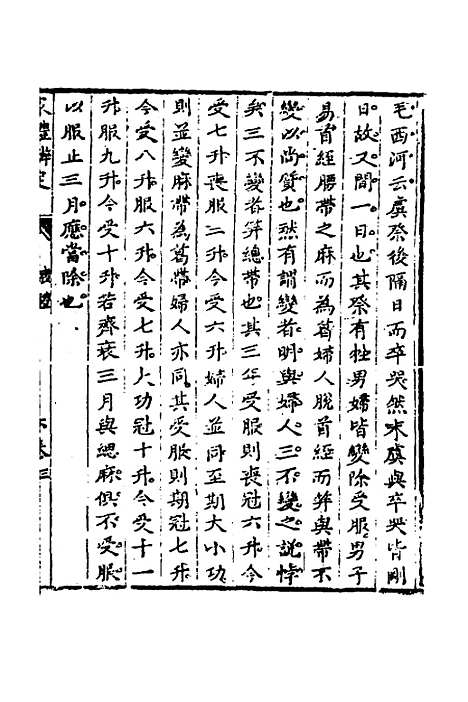 毛西河云虞祭後隔日而卒哭然末虞與卒哭皆剛
日故又間一日也其祭有牲男婦皆變除受服男子
易首絰腰帶之麻而為葛婦人脫首絰而笄與帶不
變以尚質也然有謂變者明與婦人三不變之說悖
矣三不變者笄總帶也其三年受服則喪冠六升今
受七升喪服三升今受六升婦人並同至期大小功
則並變麻帶為葛帶婦人亦同其受服則期冠七升
今受八升服六升今受七升大功冠十升今受十一
升服九升今受十升若齊衰三月與緦麻俱不受服
以服止三月應當除也
家禮辨定
卷三